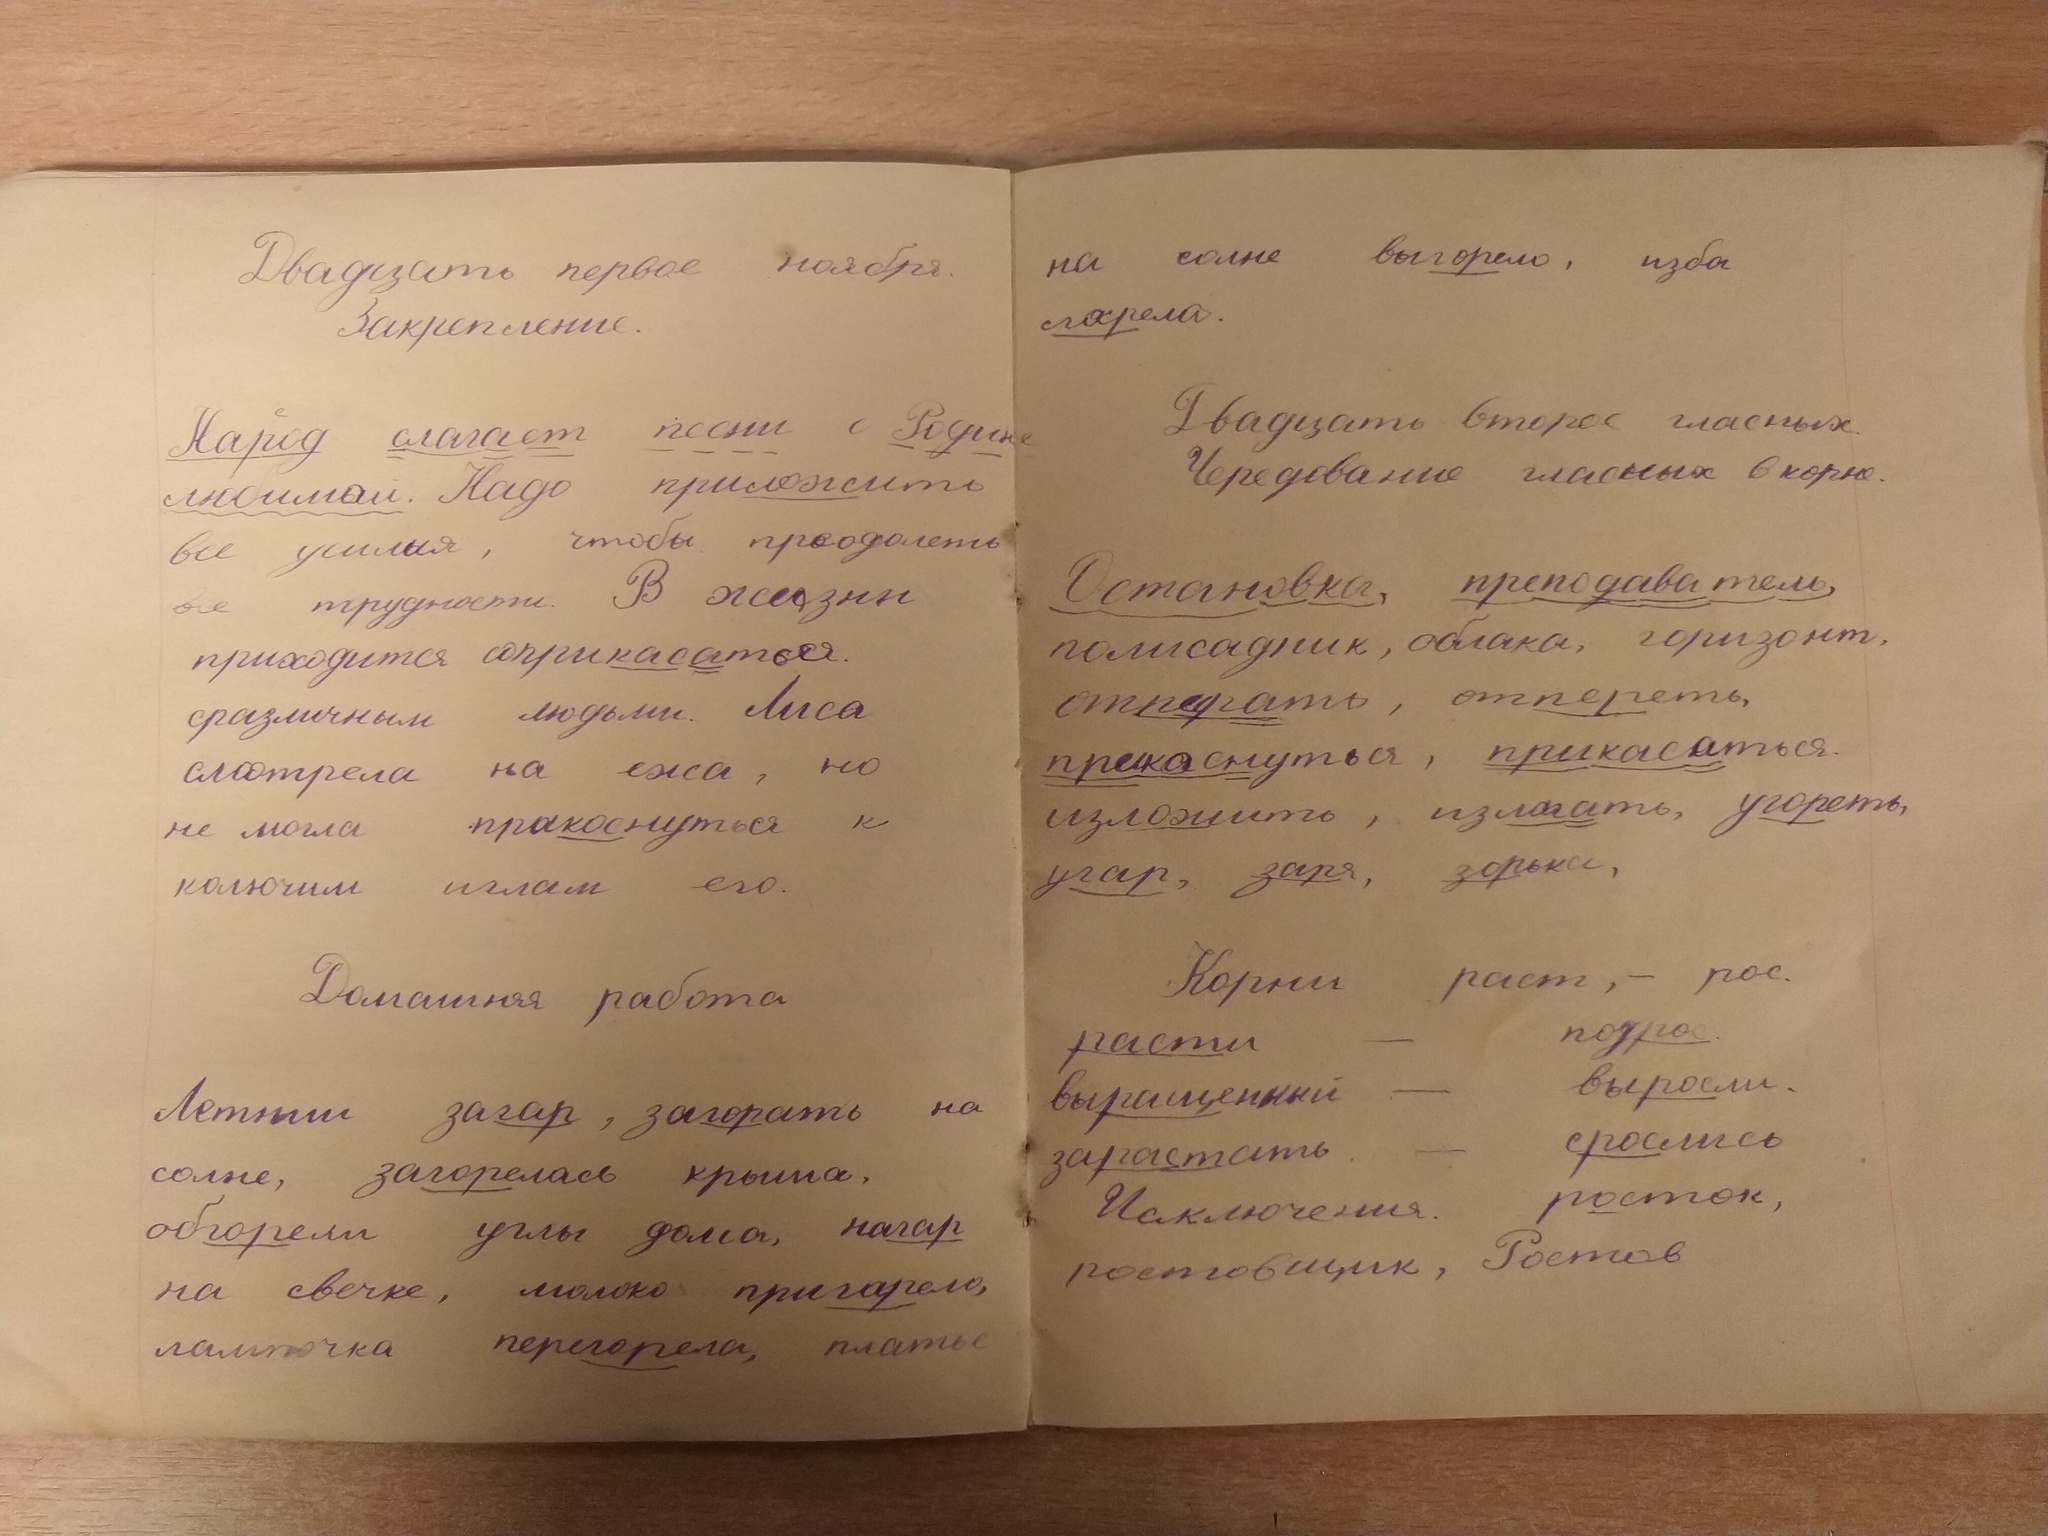 Двадцать первое ноября.
Закрепление.
Народ слагает песни о Родине
любимой. Надо приложить
все усилия, чтобы преодолеть
все трудности. В жизни
приходится соприкасаться.
сразличным людьми. Лиса
смотрела на ежа, но
не могла прикоснуться к
колючим иглам его.
Домашняя работа
Летний загар, загорать на
солне, загорелась крыша,
обгорели углы дома, нагар
на свечке, молоко пригорело,
лампочка перегорела, платье
на солне выгорело, изба
сгорела.
Двадцать второе гласных.
Чередование гласных в корне.
Остановка, преподаватель,
полисадник, облака, горизонт,
отпирать, отпереть,
прикоснуться, прикасаться.
изложить, излагать, угореть,
угар, заря, зорька,
Корни раст, - рос.
расти — подрос.
выращенный — выросли.
зарастать — срослись
Исключения. росток,
ростовщик, Ростов